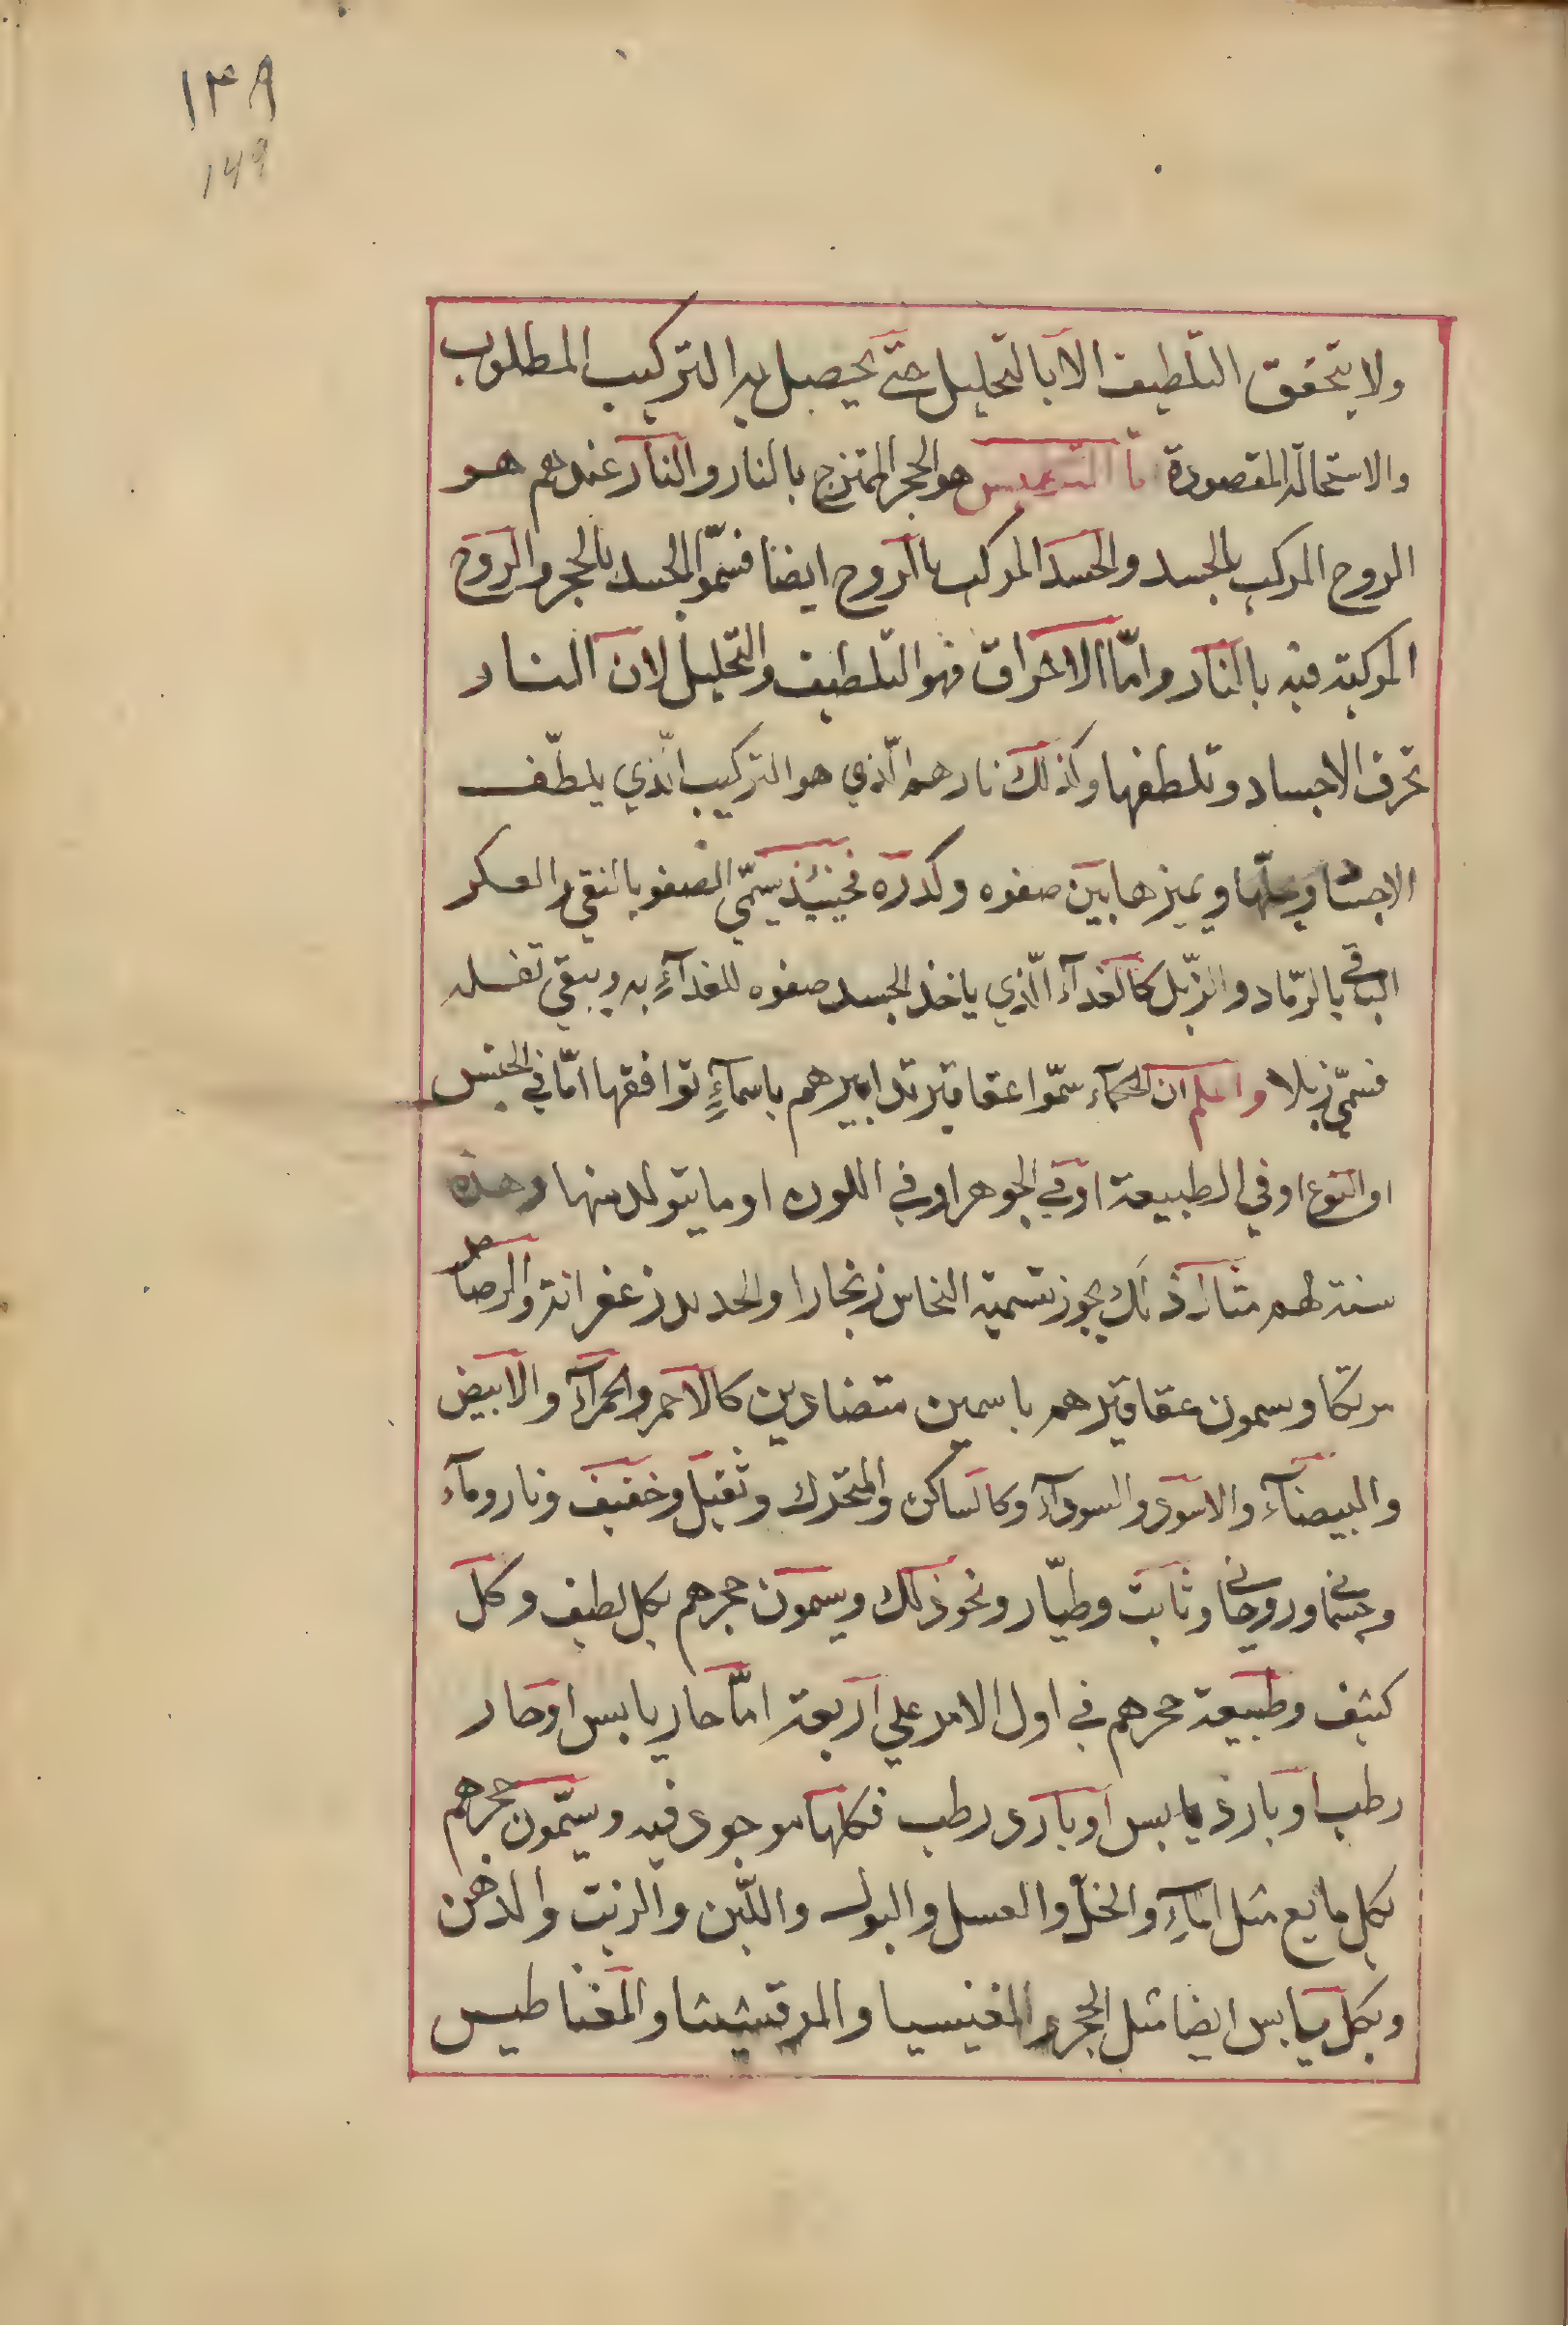 ١٣٨
١٤٩
ولا يتحقق التلطيف الا بالتحليل حتى يحصل به التركيب المطلوب
والاستحالة المقصودة هو الحجر الممتزج بالنار والنار عندهم هو
الروح المركب بالجسد والجسد المركب بالروح ايضا فسمّوا الجسد بالحجر والروح
المركبة فيه بالنار وامّا الاحراق فهو التلطيف والتحليل لان النار
تحرق الاجساد وتلطفها وكذلك نارهم الّذي هو التركيب الّذي يلطّف
الاجساد ويحلّها ويميزها بين صفوه وكدره فحينئذ يسمّي الصفو بالنقي والعكر
الباقي بالرّماد والزّبل كالغدآء الّذي ياخذ الجسد صفوه للغدآءِ به ويبقي تفله
فسمّي زبلا واعلم ان الحكمآء سمّوا عقاقير تدابيرهم باسمآءٍ توافقها امّا في الجنس
او النوع او في الطبيعة او في الجوهر او في اللون او ما يتولد منها وهذه
سنة لهم مثال ذلك يجوز تسمية النحاس زنجارا والحديد زعفرانة والرصاص
مرتكا وسمون عقاقيرهم باسمين متضادين كالاحمر والحمرآءِ والابيض
والبيضآء والاسود والسودآء وكالساكن والمتحرك وثقيل وخفيف ونار ومآء
وجسماني وروحاني وثابت وطيّار ونحو ذلك ويسمون حجرهم بكل لطيف وكل
كثيف وطبيعة حجرهم في اول الامر علي اربعة امّا حار يابس او حار
رطب او بارد يابس او بارد رطب فكلها موجود فيه ويسمّون حجرهم
بكل مايع مثل المآءِ والخلّ والعسل والبول واللّبن والزيت والدهن
وبكل يابس ايضا مثل الحجر والمغنيسيا والمرقشيشا والمغناطيس